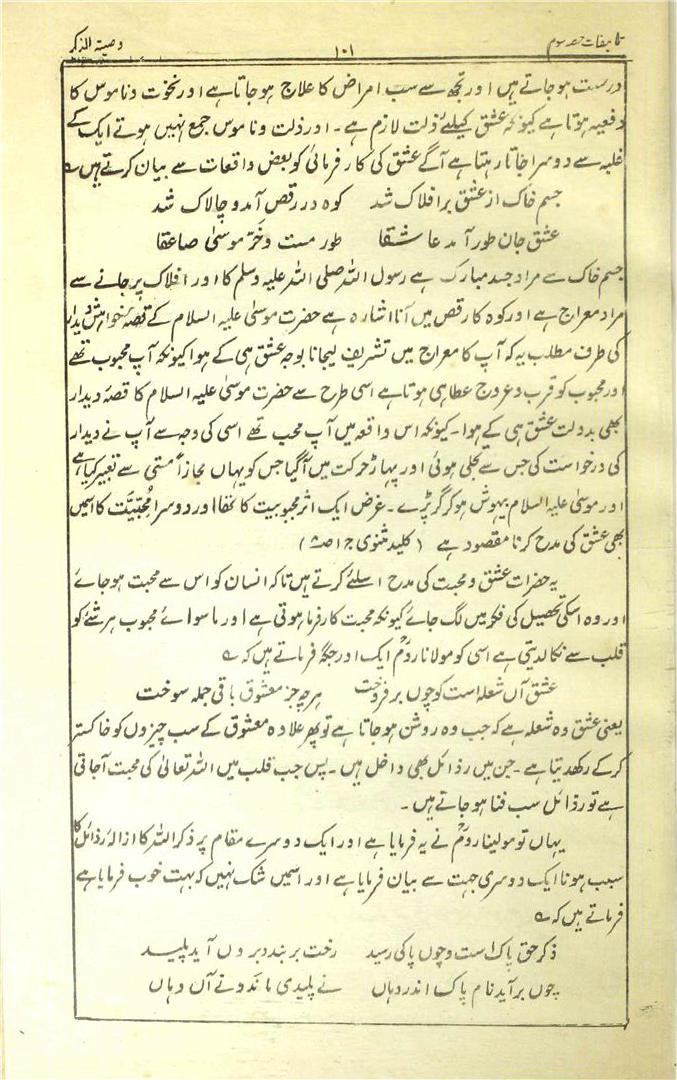 تالیفات حصہ سوم ۱۰۱ وصیۃ الذکر
درست ہو جاتے ہیں اور تجھ سے سب امراض کا علاج ہو جاتا ہے اور نخوت و ناموس کا
دفعیہ ہوتا ہے کیونکہ عشق کیلئے ذلت لازم ہے۔ اور ذلت و ناموس جمع نہیں ہوتے ایک کے
غلبہ سے دوسرا جاتا رہتا ہے آگے عشق کی کار فرمائی کو بعض واقعات سے بیان کرتے ہیں ؎
جسم خاک از عشق بر افلاک شد کوہ در رقص آمد و چالاک شد
عشق جان طور آمد عاشقا طور مست و خَرَّ موسیٰ صاعقا
جسم خاک سے مراد جسد مبارک ہے رسول اللہ صلی اللہ علیہ وسلم کا اور افلاک پر جانے سے
مراد معراج ہے اور کوہ کا رقص میں آنا اشارہ ہے حضرت موسیٰ علیہ السلام کے قصۂ خواہش دیدار
کی طرف مطلب یہ کہ آپ کا معراج میں تشریف لیجانا بوجہ عشق ہی کے ہوا کیونکہ آپ محبوب تھے
اور محبوب کو قرب و عروج عطا ہی ہوتا ہے اسی طرح سے حضرت موسیٰ علیہ السلام کا قصۂ دیدار
بھی بدولت عشق ہی کے ہوا۔ کیونکہ اس واقعہ میں آپ محب تھے اسی کی وجہ سے آپ نے دیدار
کی درخواست کی جس سے تجلی ہوئی اور پہاڑ حرکت میں آگیا جس کو یہاں مجازاً مستی سے تعبیر کیا ہے
اور موسیٰ علیہ السلام بیہوش ہو کر گر پڑے۔ غرض ایک اثر محبوبیت کا تھا اور دوسرا مُحِبِّیَّت کا اسمیں
بھی عشق کی مدح کرنا مقصود ہے (کلید مثنوی ج ۱ ص۸)
یہ حضرات عشق و محبت کی مدح اسلئے کرتے ہیں تاکہ انسان کو اس سے محبت ہو جائے
اور وہ اسکی تحصیل کی فکر میں لگ جائے کیونکہ محبت کارفرما ہوتی ہے اور ماسوائے محبوب ہر شئے کو
قلب سے نکالدیتی ہے اسی کو مولانا رومؒ ایک اور جگہ فرماتے ہیں کہ ؎
عشق آں شعلہ است کو چوں بر فروخت ہرچہ جز معشوق باقی جملہ سوخت
یعنی عشق وہ شعلہ ہے کہ جب وہ روشن ہو جاتا ہے تو پھر علاوہ معشوق کے سب چیزوں کو خاکستر
کر کے رکھدیتا ہے۔ جن میں رذائل بھی داخل ہیں۔ پس جب قلب میں اللہ تعالیٰ کی محبت آجاتی
ہے تو رذائل سب فنا ہو جاتے ہیں۔
یہاں تو مولینا رومؒ نے یہ فرمایا ہے اور ایک دوسرے مقام پر ذکر اللہ کا ازالۂ رذائل کا
سبب ہونا ایک دوسری جہت سے بیان فرمایا ہے اور اسمیں شک نہیں کہ بہت خوب فرمایا ہے
فرماتے ہیں کہ ؎
ذکر حق پاک است و چوں پاکی رسید رخت بر بندد بروں آید پلید
چوں برآید نام پاک اندر دہاں نے پلیدی ماند و نے آن دہاں